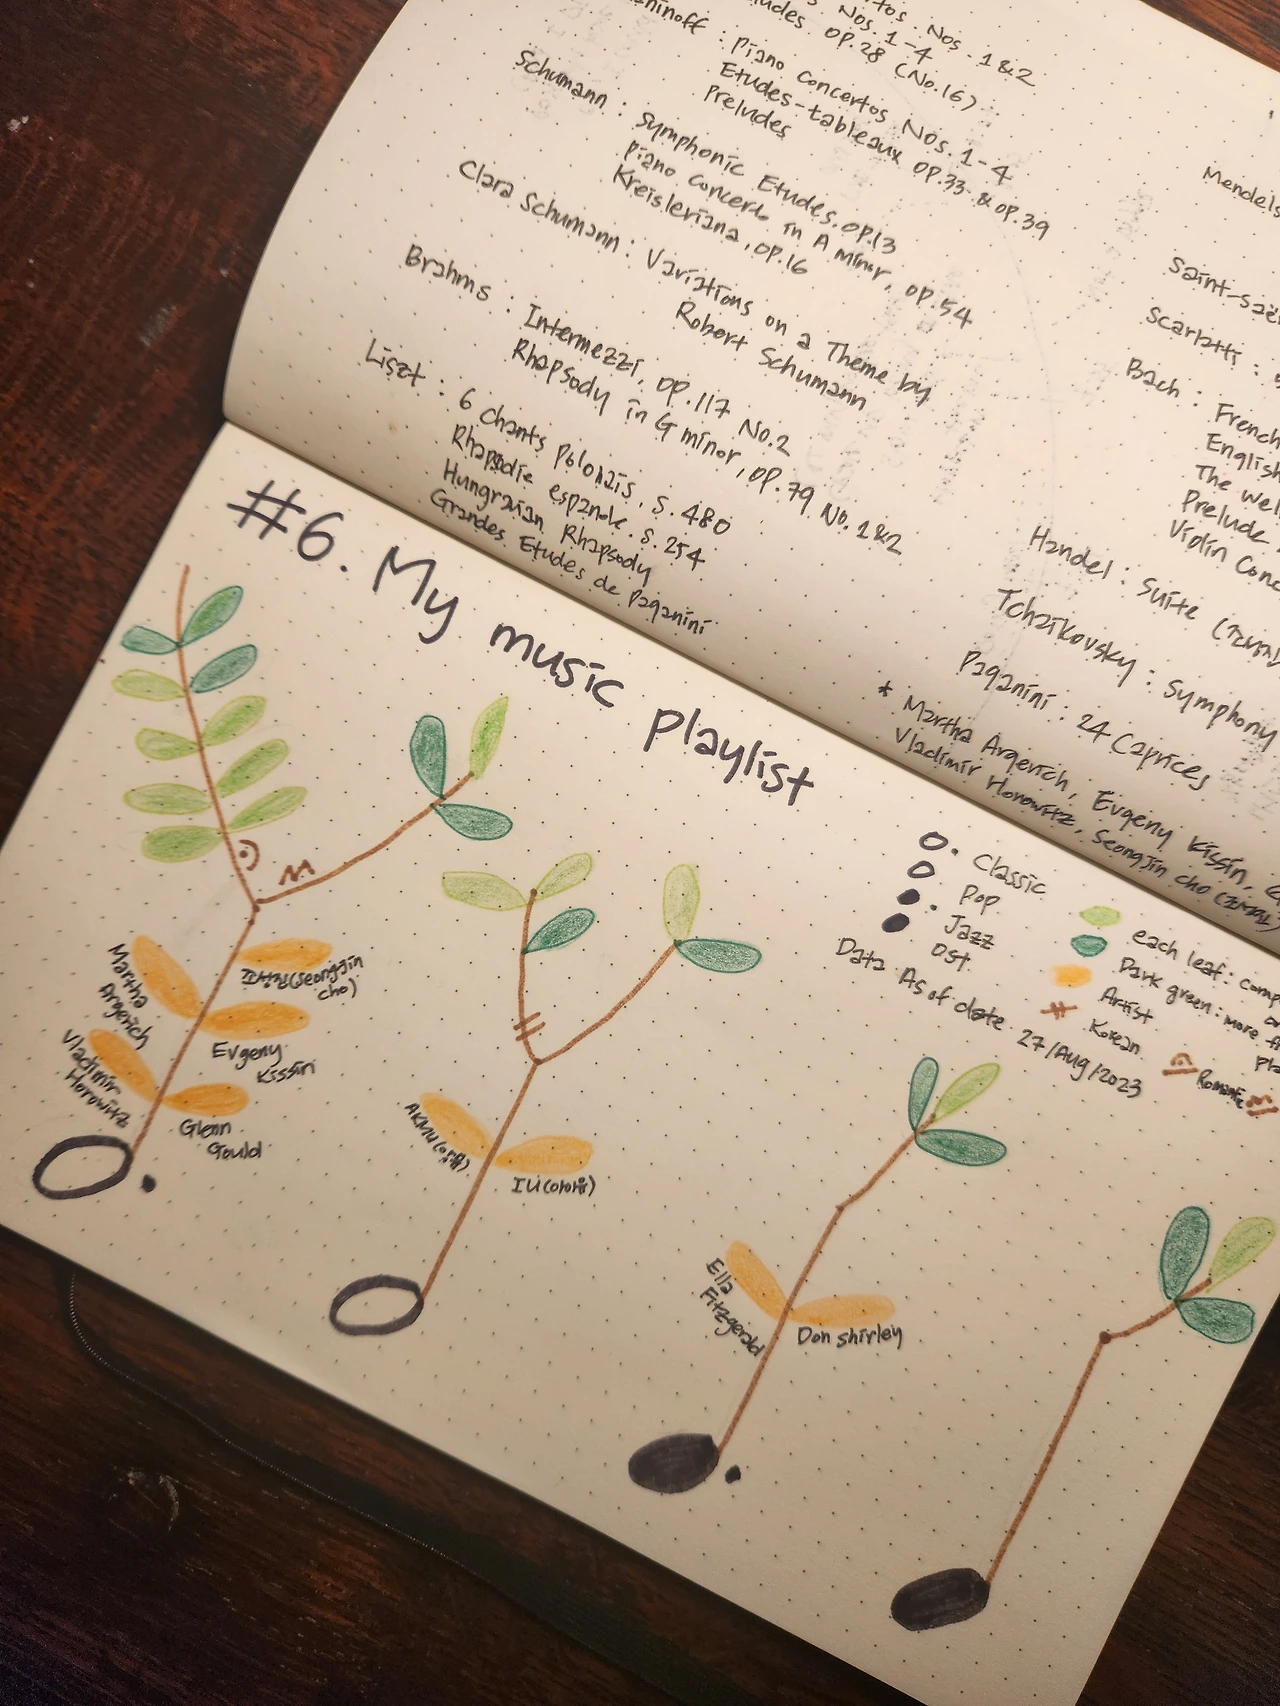 Nos. 1&2
Nos. 1-4
OP.28 (No.16)
: Piano Concertos Nos. 1-4
Etudes-tableaux OP.33 & OP.39
Preludes
Schumann : Symphonic Etudes. OP.13
Piano Concerto in A minor, OP.54
Kreisleriana, OP.16
Clara Schumann : Variations on a Theme by
Robert Schumann
Brahms : Intermezzi, OP.117 No.2
Rhapsody in G minor, OP.79 No.1&2
Liszt : 6 Chants polonais, S.480
Rhapsodie espanole. S.254
Hungraian Rhapsody
Grandes Etudes de Paganini
Mendels
Saint-Saë
Scarlatti :
Bach : French
English
The Well
Prelude
Violin Conc
Handel : Suite (조성진)
Tchaikovsky : Symphony
Paganini : 24 Caprices
* Martha Argerich, Evgeny Kissin,
Vladimir Horowitz, Seongjin Cho (조성진)
#6. My music playlist
Classic
Pop
Jazz
Ost
Data As of date 27/Aug/2023
each leaf : comp
Dark green : more f
Artist
Korean
Romantic
M
M
Martha
Argerich
조성진(Seongjin
Cho)
Evgeny
Kissin
Vladimir
Horowitz
Glenn
Gould
AKMU(악뮤)
IU(아이유)
Ella
Fitzgerald
Don Shirley